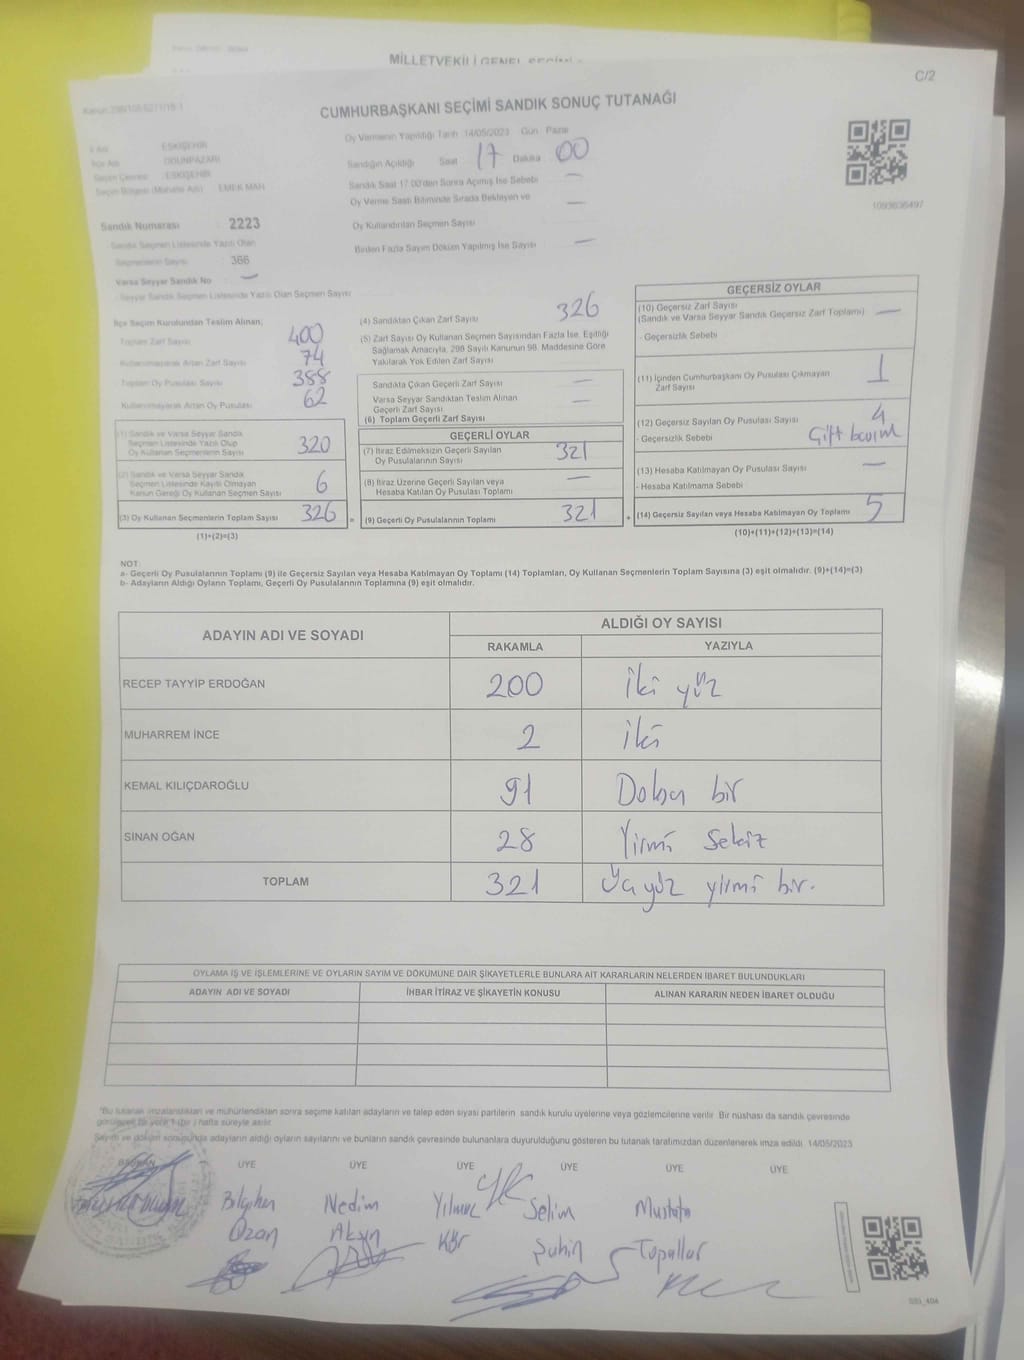 MİLLETVEKİLİ GENEL SEÇİMİ
C/2
CUMHURBAŞKANI SEÇİMİ SANDIK SONUÇ TUTANAĞI
Oy Vermenin Yapıldığı Tarih 14/05/2023 Gün Pazar
İl Adı ESKİŞEHİR
İlçe Adı ODUNPAZARI
Seçim Çevresi ESKİŞEHİR
Seçim Bölgesi (Mahalle Adı) EMEK MAH
Sandığın Açıldığı Saat 17 Dakika 00
Sandık Saat 17.00'den Sonra Açılmış İse Sebebi —
Oy Verme Saati Bitiminde Sırada Bekleyen ve
Oy Kullandırılan Seçmen Sayısı —
Birden Fazla Sayım Döküm Yapılmış İse Sayısı —
1093636497
Sandık Numarası 2223
Sandık Seçmen Listesinde Yazılı Olan
Seçmenlerin Sayısı 366
Varsa Seyyar Sandık No —
Seyyar Sandık Seçmen Listesinde Yazılı Olan Seçmen Sayısı
İlçe Seçim Kurulundan Teslim Alınan;
Toplam Zarf Sayısı 400
Kullanılmayarak Artan Zarf Sayısı 74
Toplam Oy Pusulası Sayısı 388
Kullanılmayarak Artan Oy Pusulası 62
(1) Sandık ve Varsa Seyyar Sandık
Seçmen Listesinde Yazılı Olup
Oy Kullanan Seçmenlerin Sayısı 320
(2) Sandık ve Varsa Seyyar Sandık
Seçmen Listesinde Kayıtlı Olmayan
Kanun Gereği Oy Kullanan Seçmen Sayısı 6
(3) Oy Kullanan Seçmenlerin Toplam Sayısı 326 =
(1)+(2)=(3)
(4) Sandıktan Çıkan Zarf Sayısı 326
(5) Zarf Sayısı Oy Kullanan Seçmen Sayısından Fazla İse, Eşitliği
Sağlamak Amacıyla, 298 Sayılı Kanunun 98. Maddesine Göre
Yakılarak Yok Edilen Zarf Sayısı
Sandıkta Çıkan Geçerli Zarf Sayısı —
Varsa Seyyar Sandıktan Teslim Alınan
Geçerli Zarf Sayısı —
(6) Toplam Geçerli Zarf Sayısı
GEÇERLİ OYLAR
(7) İtiraz Edilmeksizin Geçerli Sayılan
Oy Pusulalarının Sayısı 321
(8) İtiraz Üzerine Geçerli Sayılan veya
Hesaba Katılan Oy Pusulası Toplamı —
(9) Geçerli Oy Pusulalarının Toplamı 321 +
GEÇERSİZ OYLAR
(10) Geçersiz Zarf Sayısı
(Sandık ve Varsa Seyyar Sandık Geçersiz Zarf Toplamı) —
- Geçersizlik Sebebi
(11) İçinden Cumhurbaşkanı Oy Pusulası Çıkmayan
Zarf Sayısı 1
(12) Geçersiz Sayılan Oy Pusulası Sayısı 4
- Geçersizlik Sebebi Çift basım
(13) Hesaba Katılmayan Oy Pusulası Sayısı —
- Hesaba Katılmama Sebebi
(14) Geçersiz Sayılan veya Hesaba Katılmayan Oy Toplamı 5
(10)+(11)+(12)+(13)=(14)
NOT:
a- Geçerli Oy Pusulalarının Toplamı (9) ile Geçersiz Sayılan veya Hesaba Katılmayan Oy Toplamı (14) Toplamları, Oy Kullanan Seçmenlerin Toplam Sayısına (3) eşit olmalıdır. (9)+(14)=(3)
b- Adayların Aldığı Oyların Toplamı, Geçerli Oy Pusulalarının Toplamına (9) eşit olmalıdır.
ADAYIN ADI VE SOYADI
ALDIĞI OY SAYISI
RAKAMLA YAZIYLA
RECEP TAYYİP ERDOĞAN 200 İki yüz
MUHARREM İNCE 2 iki
KEMAL KILIÇDAROĞLU 91 Doksan bir
SİNAN OĞAN 28 Yirmi sekiz
TOPLAM 321 Üçyüz yirmi bir.
OYLAMA İŞ VE İŞLEMLERİNE VE OYLARIN SAYIM VE DÖKÜMÜNE DAİR ŞİKAYETLERLE BUNLARA AİT KARARLARIN NELERDEN İBARET BULUNDUKLARI
ADAYIN ADI VE SOYADI İHBAR İTİRAZ VE ŞİKAYETİN KONUSU ALINAN KARARIN NEDEN İBARET OLDUĞU
*Bu tutanak imzalandıktan ve mühürlendikten sonra seçime katılan adayların ve talep eden siyasi partilerin sandık kurulu üyelerine veya gözlemcilerine verilir. Bir nüshası da sandık çevresinde
görülecek bir yere 1 (bir) hafta süreyle asılır.
Sayım ve döküm sonunda adayların aldığı oyların sayılarını ve bunların sandık çevresinde bulunanlara duyurulduğunu gösteren bu tutanak tarafımızdan düzenlenerek imza edildi. 14/05/2023
BAŞKAN ÜYE ÜYE ÜYE ÜYE ÜYE ÜYE
Bilgihan Nedim Yılmaz Selim Mustafa
Ozan Akyn Kör Şahin Topallar
SS1_404